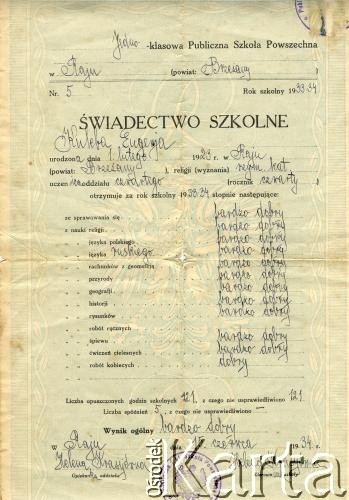 Jedno-klasowa Publiczna Szkoła Powszechna
w Raju (powiat: Brzeżany)
Nr. 5 Rok szkolny 1933-34
ŚWIADECTWO SZKOLNE
Kuleba Eugenja
urodzona dnia 1. lutego 1923 r. w Raju
(powiat: Brzeżany), religji (wyznania) rzym. kat.
oddziału czwartego (rocznik czwarty)
otrzymuje za rok szkolny 1933-34 stopnie następujące:
ze sprawowania się bardzo dobry
z nauki religji bardzo dobry
„ języka polskiego bardzo dobry
„ języka ruskiego bardzo dobry
„ rachunków z geometrją bardzo dobry
„ przyrody bardzo dobry
„ geografji bardzo dobry
„ historji bardzo dobry
„ rysunków bardzo dobry
„ robót ręcznych
„ śpiewu bardzo dobry
„ ćwiczeń cielesnych bardzo dobry
„ robót kobiecych dobry
Liczba opuszczonych godzin szkolnych 121, z czego nie usprawiedliwiono 121
Liczba spóźnień 5, z czego nie usprawiedliwiono —
Wynik ogólny bardzo dobry
w Raju czerwca 1934 r.
Helena
Opiekun oddziału szkoły
Ośrodek
Karta